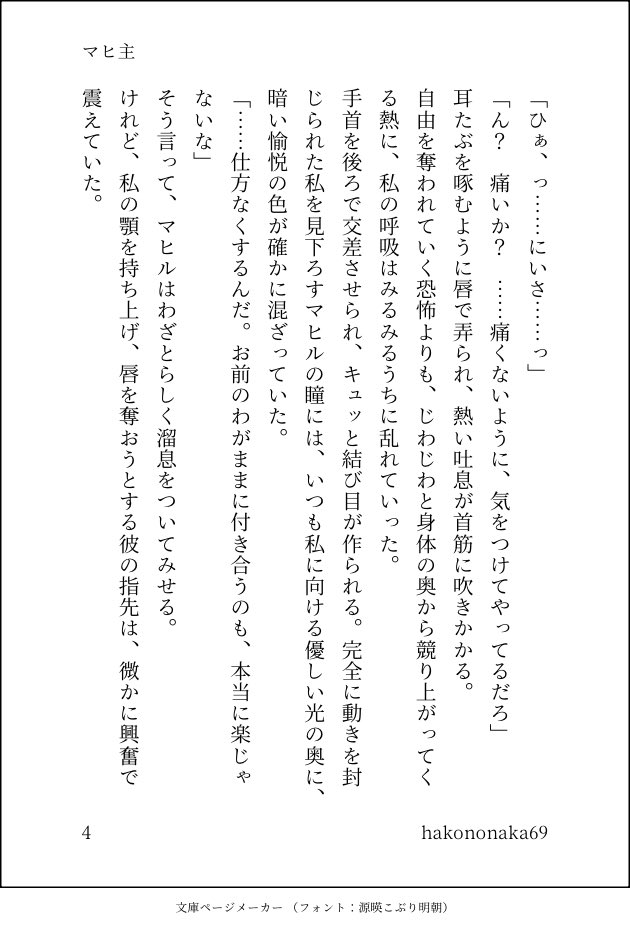 マヒ主
「ひぁ、っ……にいさ……っ」
「ん？　痛いか？　……痛くないように、気をつけてやってるだろ」
耳たぶを啄むように唇で弄られ、熱い吐息が首筋に吹きかかる。
自由を奪われていく恐怖よりも、じわじわと身体の奥から競り上がってく
る熱に、私の呼吸はみるみるうちに乱れていった。
手首を後ろで交差させられ、キュッと結び目が作られる。完全に動きを封
じられた私を見下ろすマヒルの瞳には、いつも私に向ける優しい光の奥に、
暗い愉悦の色が確かに混ざっていた。
「……仕方なくするんだ。お前のわがままに付き合うのも、本当に楽じゃ
ないな」
そう言って、マヒルはわざとらしく溜息をついてみせる。
けれど、私の顎を持ち上げ、唇を奪おうとする彼の指先は、微かに興奮で
震えていた。
4
hakononaka69
文庫ページメーカー （フォント：源暎こぶり明朝）